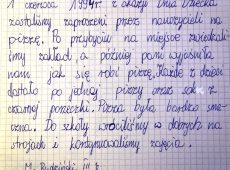 1 czerwca 1994r z okazji Dnia Dziecka
zostaliśmy zaproszeni przez nauczycieli na
pizzę. Po przybyciu na miejsce zwiedzali-
śmy zakład a później pani wyjaśniła
nam jak się robi pizzę. Każde z dzieci
dostało po jednej pizzy oraz sok z
czarnej porzeczki. Pizza była bardzo sma-
czna. Do szkoły wróciliśmy w dobrych na-
strojach i kontynuowaliśmy zajęcia.
M. Rudziński III